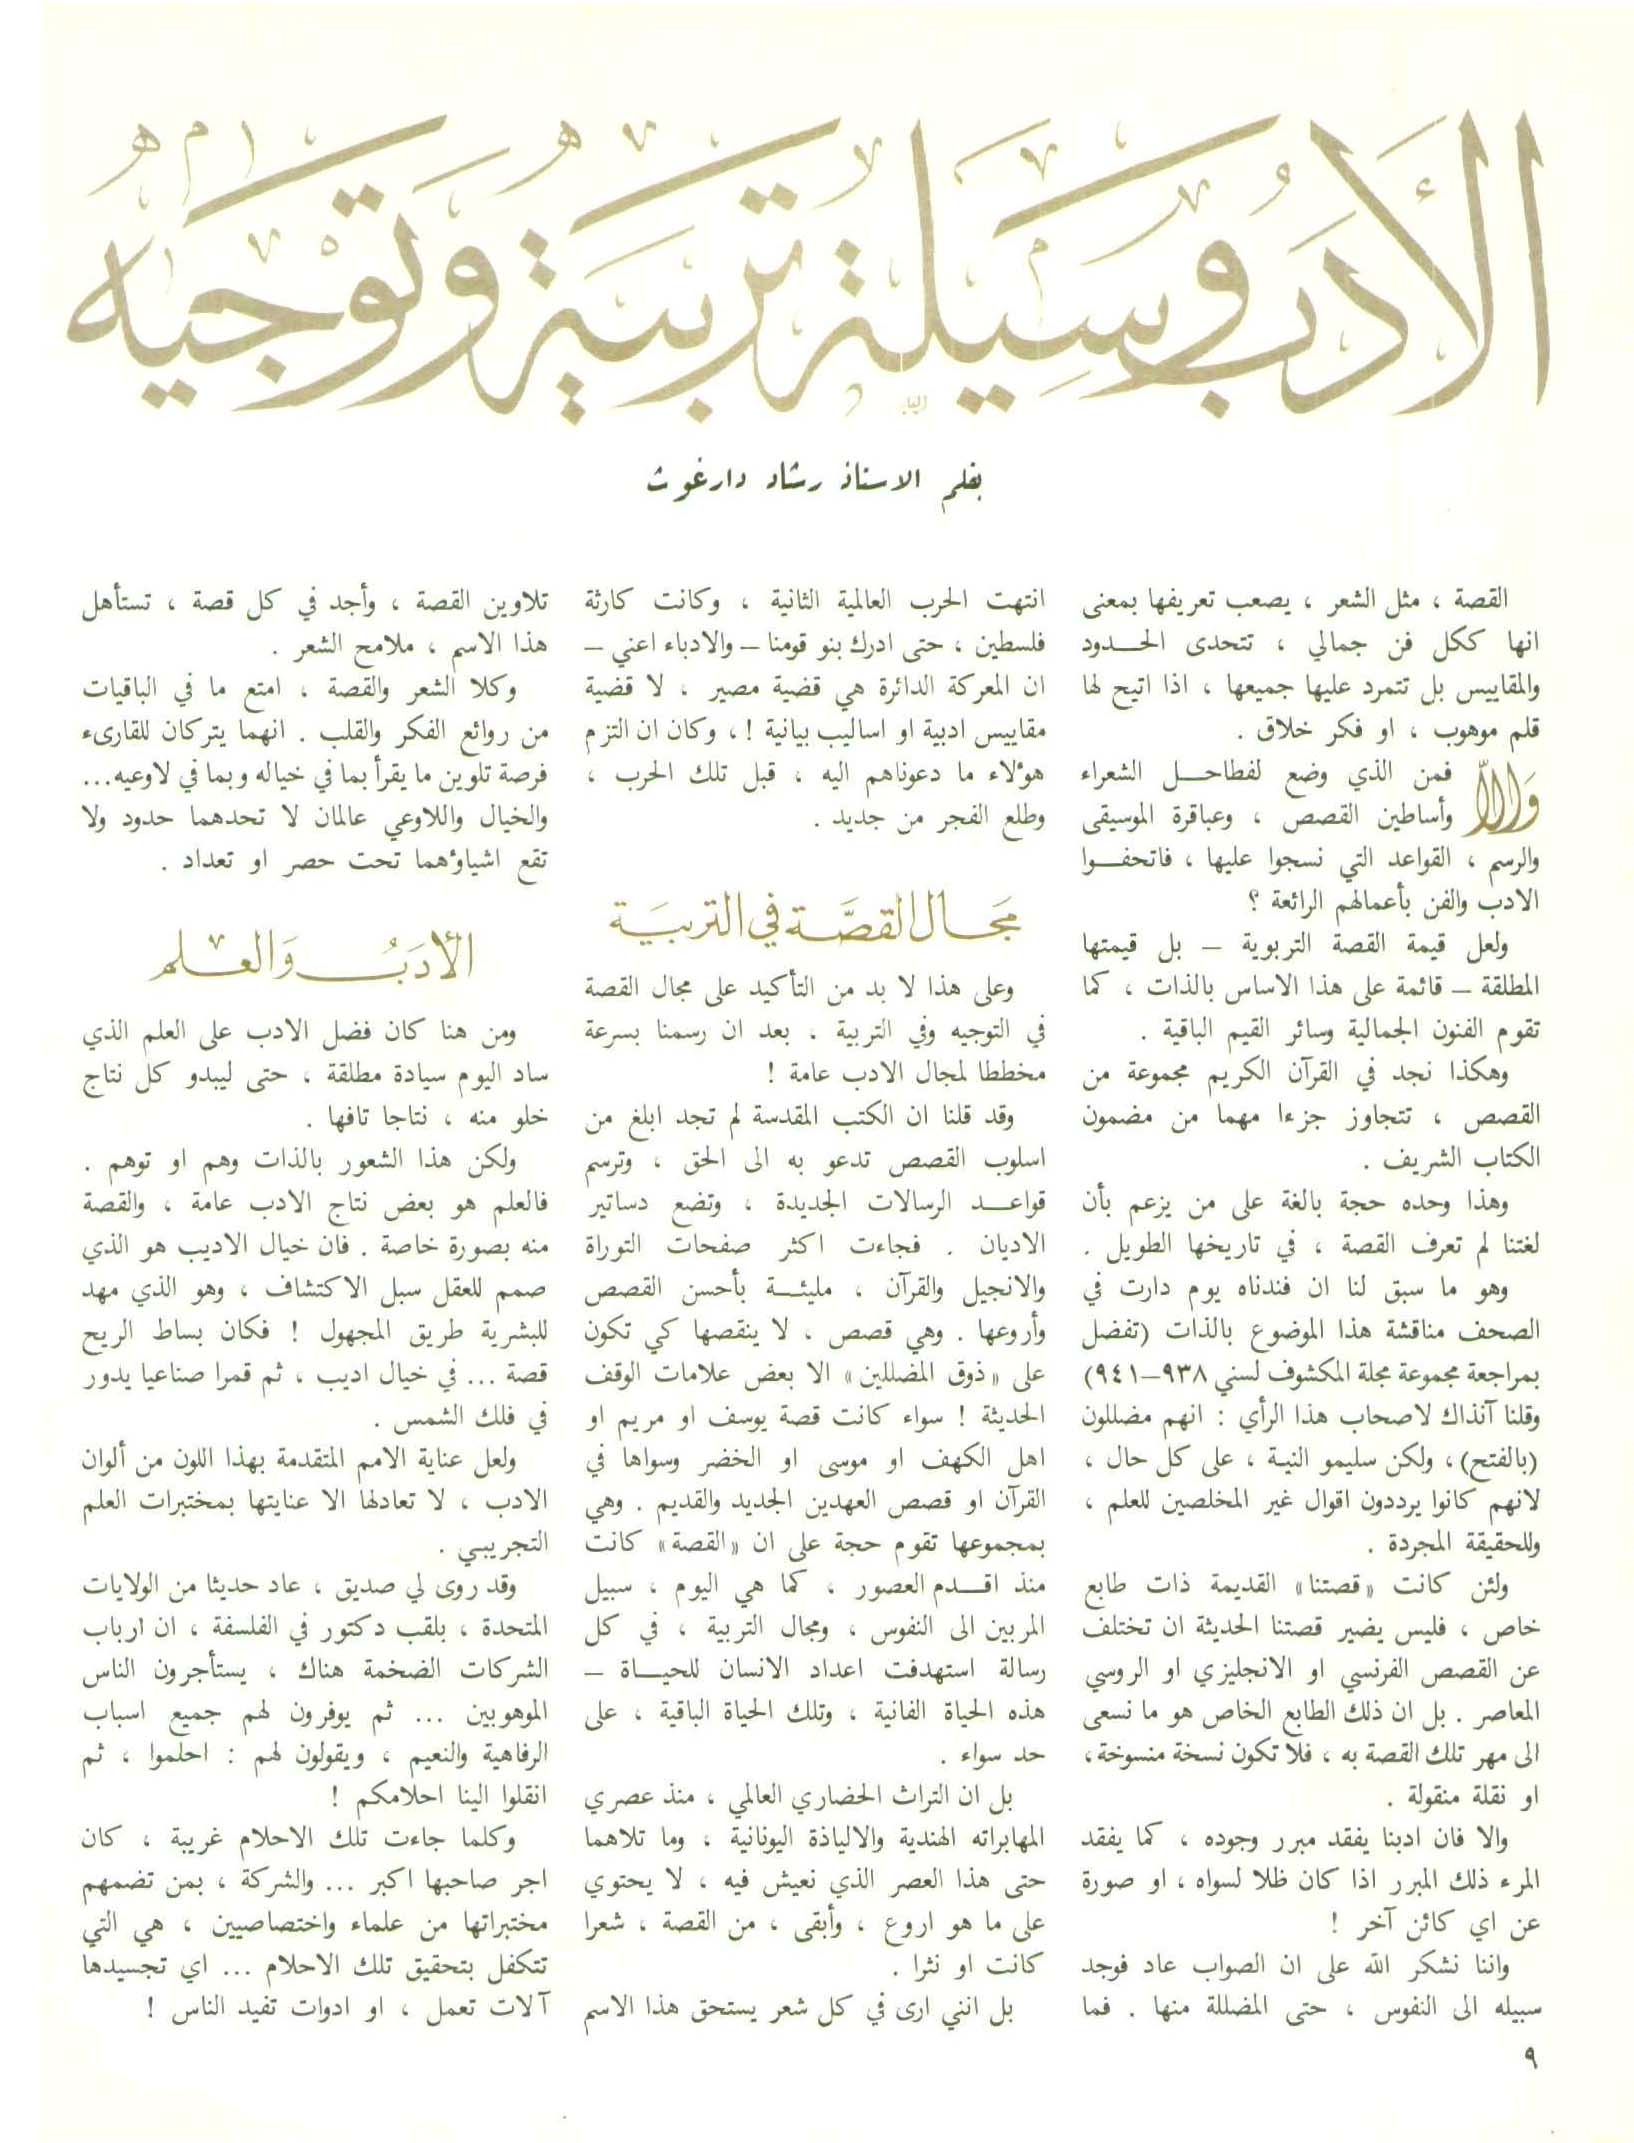 الأدب وسيلة تربية وتوجيه
بقلم الاستاذ رشاد دارغوث
القصة ، مثل الشعر ، يصعب تعريفها بمعنى
انها ككل فن جمالي ، تتحدى الحدود
والمقاييس بل تتمرد عليها جميعها ، اذا اتيح لها
قلم موهوب ، او فكر خلاق .
وَالّا فمن الذي وضع لفطاحل الشعراء
وأساطين القصص ، وعباقرة الموسيقى
والرسم ، القواعد التي نسجوا عليها ، فاتحفوا
الادب والفن بأعمالهم الرائعة ؟
ولعل قيمة القصة التربوية – بل قيمتها
المطلقة – قائمة على هذا الاساس بالذات ، كما
تقوم الفنون الجمالية وسائر القيم الباقية .
وهكذا نجد في القرآن الكريم مجموعة من
القصص ، تتجاوز جزءا مهما من مضمون
الكتاب الشريف .
وهذا وحده حجة بالغة على من يزعم بأن
لغتنا لم تعرف القصة ، في تاريخها الطويل .
وهو ما سبق لنا ان فندناه يوم دارت في
الصحف مناقشة هذا الموضوع بالذات (تفضل
بمراجعة مجموعة مجلة المكشوف لسني ٩٣٨–٩٤١)
وقلنا آنذاك لاصحاب هذا الرأي : انهم مضللون
(بالفتح) ، ولكن سليمو النية ، على كل حال ،
لانهم كانوا يرددون اقوال غير المخلصين للعلم ،
وللحقيقة المجردة .
ولئن كانت «قصتنا» القديمة ذات طابع
خاص ، فليس يضير قصتنا الحديثة ان تختلف
عن القصص الفرنسي او الانجليزي او الروسي
المعاصر . بل ان ذلك الطابع الخاص هو ما نسعى
الى مهر تلك القصة به ، فلا تكون نسخة منسوخة ،
او نقلة منقولة .
والا فان ادبنا يفقد مبرر وجوده ، كما يفقد
المرء ذلك المبرر اذا كان ظلا لسواه ، او صورة
عن اي كائن آخر !
واننا نشكر الله على ان الصواب عاد فوجد
سبيله الى النفوس ، حتى المضللة منها . فما
انتهت الحرب العالمية الثانية ، وكانت كارثة
فلسطين ، حتى ادرك بنو قومنا – والادباء اعني –
ان المعركة الدائرة هي قضية مصير ، لا قضية
مقاييس ادبية او اساليب بيانية ! ، وكان ان التزم
هؤلاء ما دعوناهم اليه ، قبل تلك الحرب ،
وطلع الفجر من جديد .
مجال القصّة في التربية
وعلى هذا لا بد من التأكيد على مجال القصة
في التوجيه وفي التربية . بعد ان رسمنا بسرعة
مخططا لمجال الادب عامة !
وقد قلنا ان الكتب المقدسة لم تجد ابلغ من
اسلوب القصص تدعو به الى الحق ، وترسم
قواعد الرسالات الجديدة ، وتضع دساتير
الاديان . فجاءت اكثر صفحات التوراة
والانجيل والقرآن ، مليئة بأحسن القصص
وأروعها . وهي قصص ، لا ينقصها كي تكون
على «ذوق المضللين» الا بعض علامات الوقف
الحديثة ! سواء كانت قصة يوسف او مريم او
اهل الكهف او موسى او الخضر وسواها في
القرآن او قصص العهدين الجديد والقديم . وهي
بمجموعها تقوم حجة على ان «القصة» كانت
منذ اقدم العصور ، كما هي اليوم ، سبيل
المربين الى النفوس ، ومجال التربية ، في كل
رسالة استهدفت اعداد الانسان للحياة –
هذه الحياة الفانية ، وتلك الحياة الباقية ، على
حد سواء .
بل ان التراث الحضاري العالمي ، منذ عصري
المهابراته الهندية والالياذة اليونانية ، وما تلاهما
حتى هذا العصر الذي نعيش فيه ، لا يحتوي
على ما هو اروع ، وأبقى ، من القصة ، شعرا
كانت او نثرا .
بل انني ارى في كل شعر يستحق هذا الاسم
تلاوين القصة ، وأجد في كل قصة ، تستأهل
هذا الاسم ، ملامح الشعر .
وكلا الشعر والقصة ، امتع ما في الباقيات
من روائع الفكر والقلب . انهما يتركان للقارىء
فرصة تلوين ما يقرأ بما في خياله وبما في لاوعيه...
والخيال واللاوعي عالمان لا تحدهما حدود ولا
تقع اشياؤهما تحت حصر او تعداد .
الأدبُ وَالعلم
ومن هنا كان فضل الادب على العلم الذي
ساد اليوم سيادة مطلقة ، حتى ليبدو كل نتاج
خلو منه ، نتاجا تافها .
ولكن هذا الشعور بالذات وهم او توهم .
فالعلم هو بعض نتاج الادب عامة ، والقصة
منه بصورة خاصة . فان خيال الاديب هو الذي
صمم للعقل سبل الاكتشاف ، وهو الذي مهد
للبشرية طريق المجهول ! فكان بساط الريح
قصة ... في خيال اديب ، ثم قمرا صناعيا يدور
في فلك الشمس .
ولعل عناية الامم المتقدمة بهذا اللون من ألوان
الادب ، لا تعادلها الا عنايتها بمختبرات العلم
التجريبي .
وقد روى لي صديق ، عاد حديثا من الولايات
المتحدة ، بلقب دكتور في الفلسفة ، ان ارباب
الشركات الضخمة هناك ، يستأجرون الناس
الموهوبين ... ثم يوفرون لهم جميع اسباب
الرفاهية والنعيم ، ويقولون لهم : احلموا ، ثم
انقلوا الينا احلامكم !
وكلما جاءت تلك الاحلام غريبة ، كان
اجر صاحبها اكبر ... والشركة ، بمن تضمهم
مختبراتها من علماء واختصاصيين ، هي التي
تتكفل بتحقيق تلك الاحلام ... اي تجسيدها
آلات تعمل ، او ادوات تفيد الناس !
٩